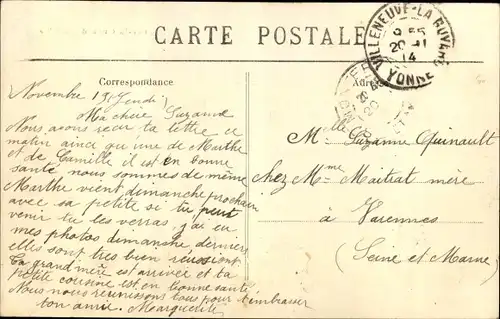 CARTE POSTALE
VILLENEUVE-LA-GUYARD
20 - 11
14
YONNE
Correspondance
Novembre 19 Jeudi
Ma chère Suzanne
Nous avons reçu ta lettre ce
matin ainsi que une de Marthe
de Camille il est en bonne
santé nous sommes de même
Marthe vient dimanche prochain
avec sa petite si tu peut
venir tu les verras j'ai eu
mes photos dimanche dernière
elles sont très bien reussient
ta grand mère est arrivée et ta
petite cousine est en bonne santé
Nous nous reunissons tous pour t'embrasser
ton amie. Marguerite
Mlle Suzanne Quinault
chez Mme Maitrat mère
à Varennes
(Seine et Marne)